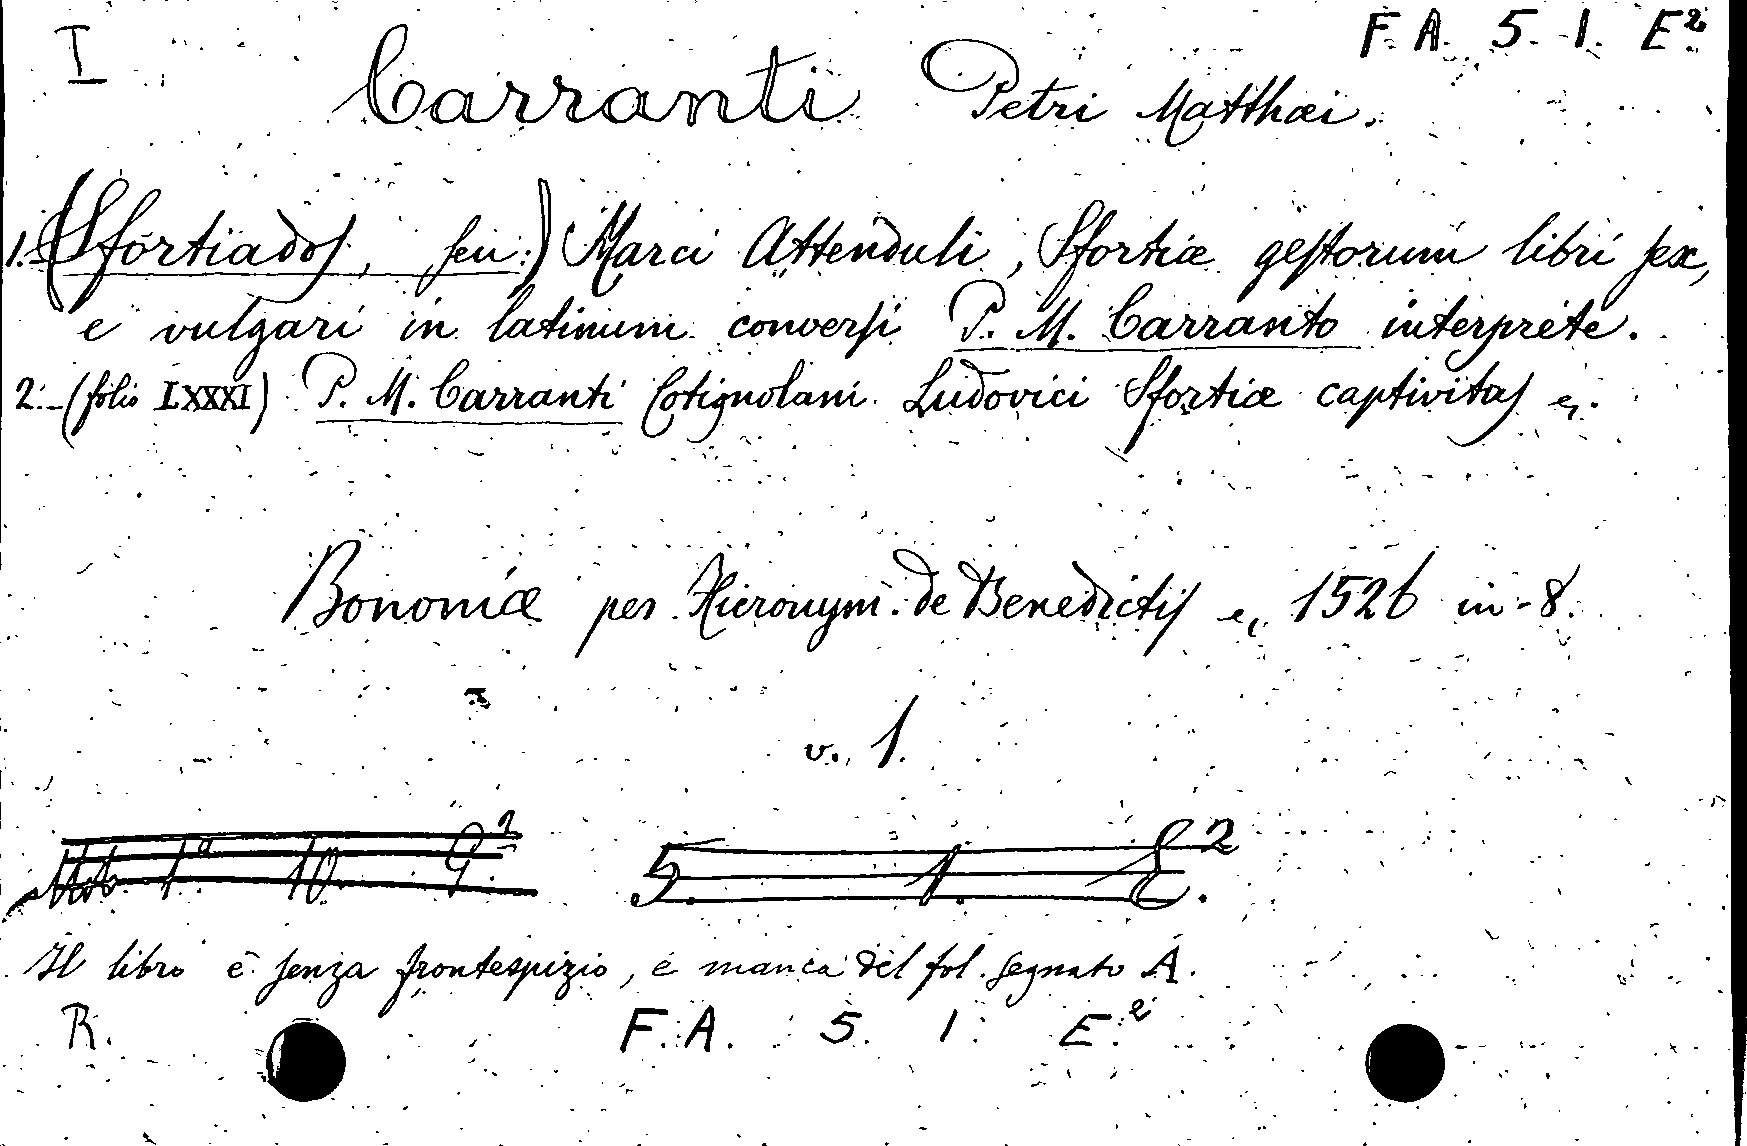 I
F. A. 5. 1. E.²
Carranti Petri Matthæi.
1. (Sfortiados, seu:) Marci Attenduli, Sfortiæ gestorum libri sex,
e vulgari in latinum conversi P. M. Carranto interprete.
2. - (folio LXXXI) P. M. Carranti Cotignolani Ludovici Sfortiæ captivitas
Bononiæ per Hieronym. de Benedictis 1526 in-8.
v. 1.
1ª 10. G.² 5. 1. E.²
Il libro è senza frontespizio, e manca del fol. segnato A.
R. F. A. 5. 1. E.²